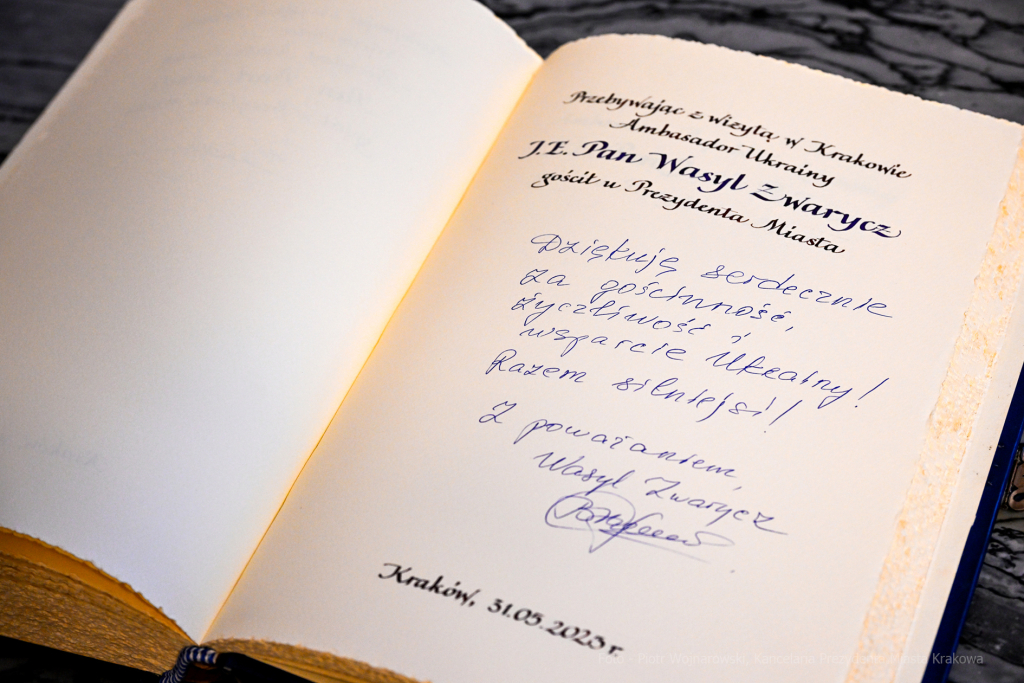 Przebywając z wizytą w Krakowie
Ambasador Ukrainy
J.E. Pan Wasyl Zwarycz
gościł u Prezydenta Miasta
Dziękuję serdecznie
za gościnność,
życzliwość i
wsparcie Ukrainy!
Razem silniejsi!
Z poważaniem,
Wasyl Zwarycz
Kraków, 31.05.2023 r.
Foto - Piotr Wojnarowski, Kancelaria Prezydenta Miasta Krakowa